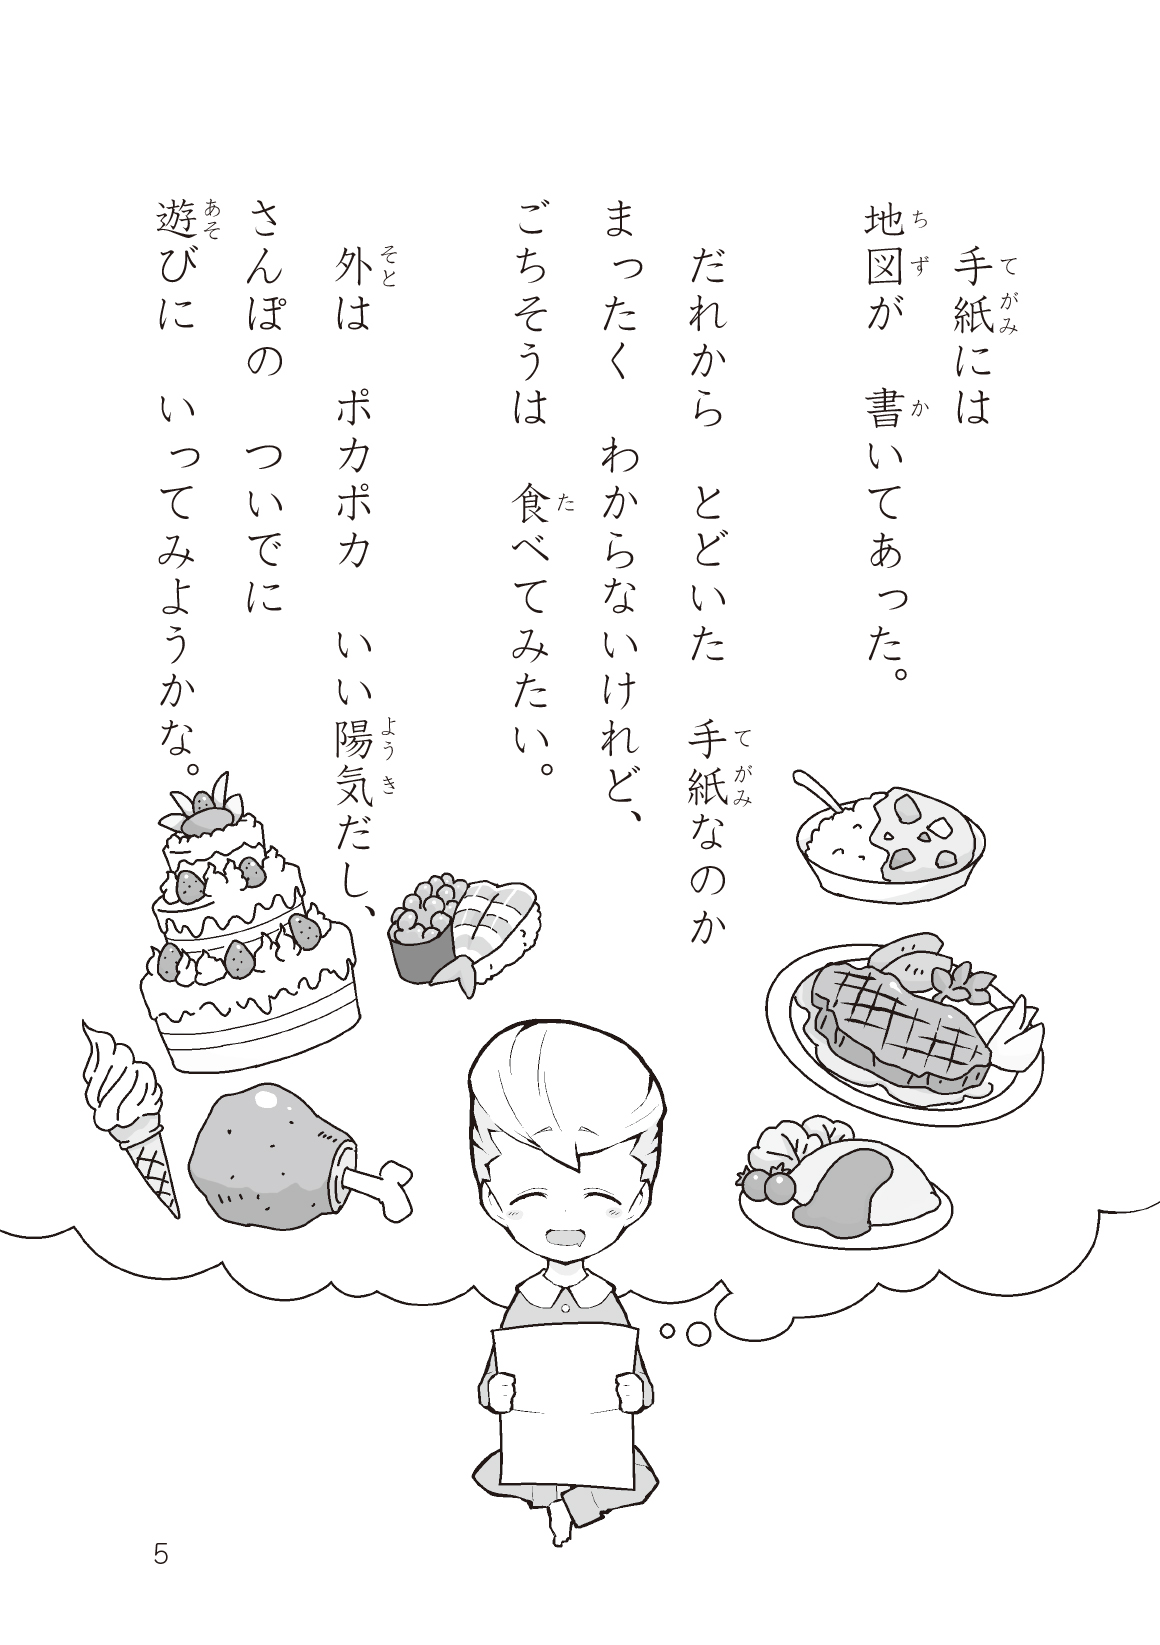 手紙には
地図が　書いてあった。
だれから　とどいた　手紙なのか
まったく　わからないけれど、
ごちそうは　食べてみたい。
外は　ポカポカ　いい陽気だし、
さんぽの　ついでに
遊びに　いってみようかな。
5